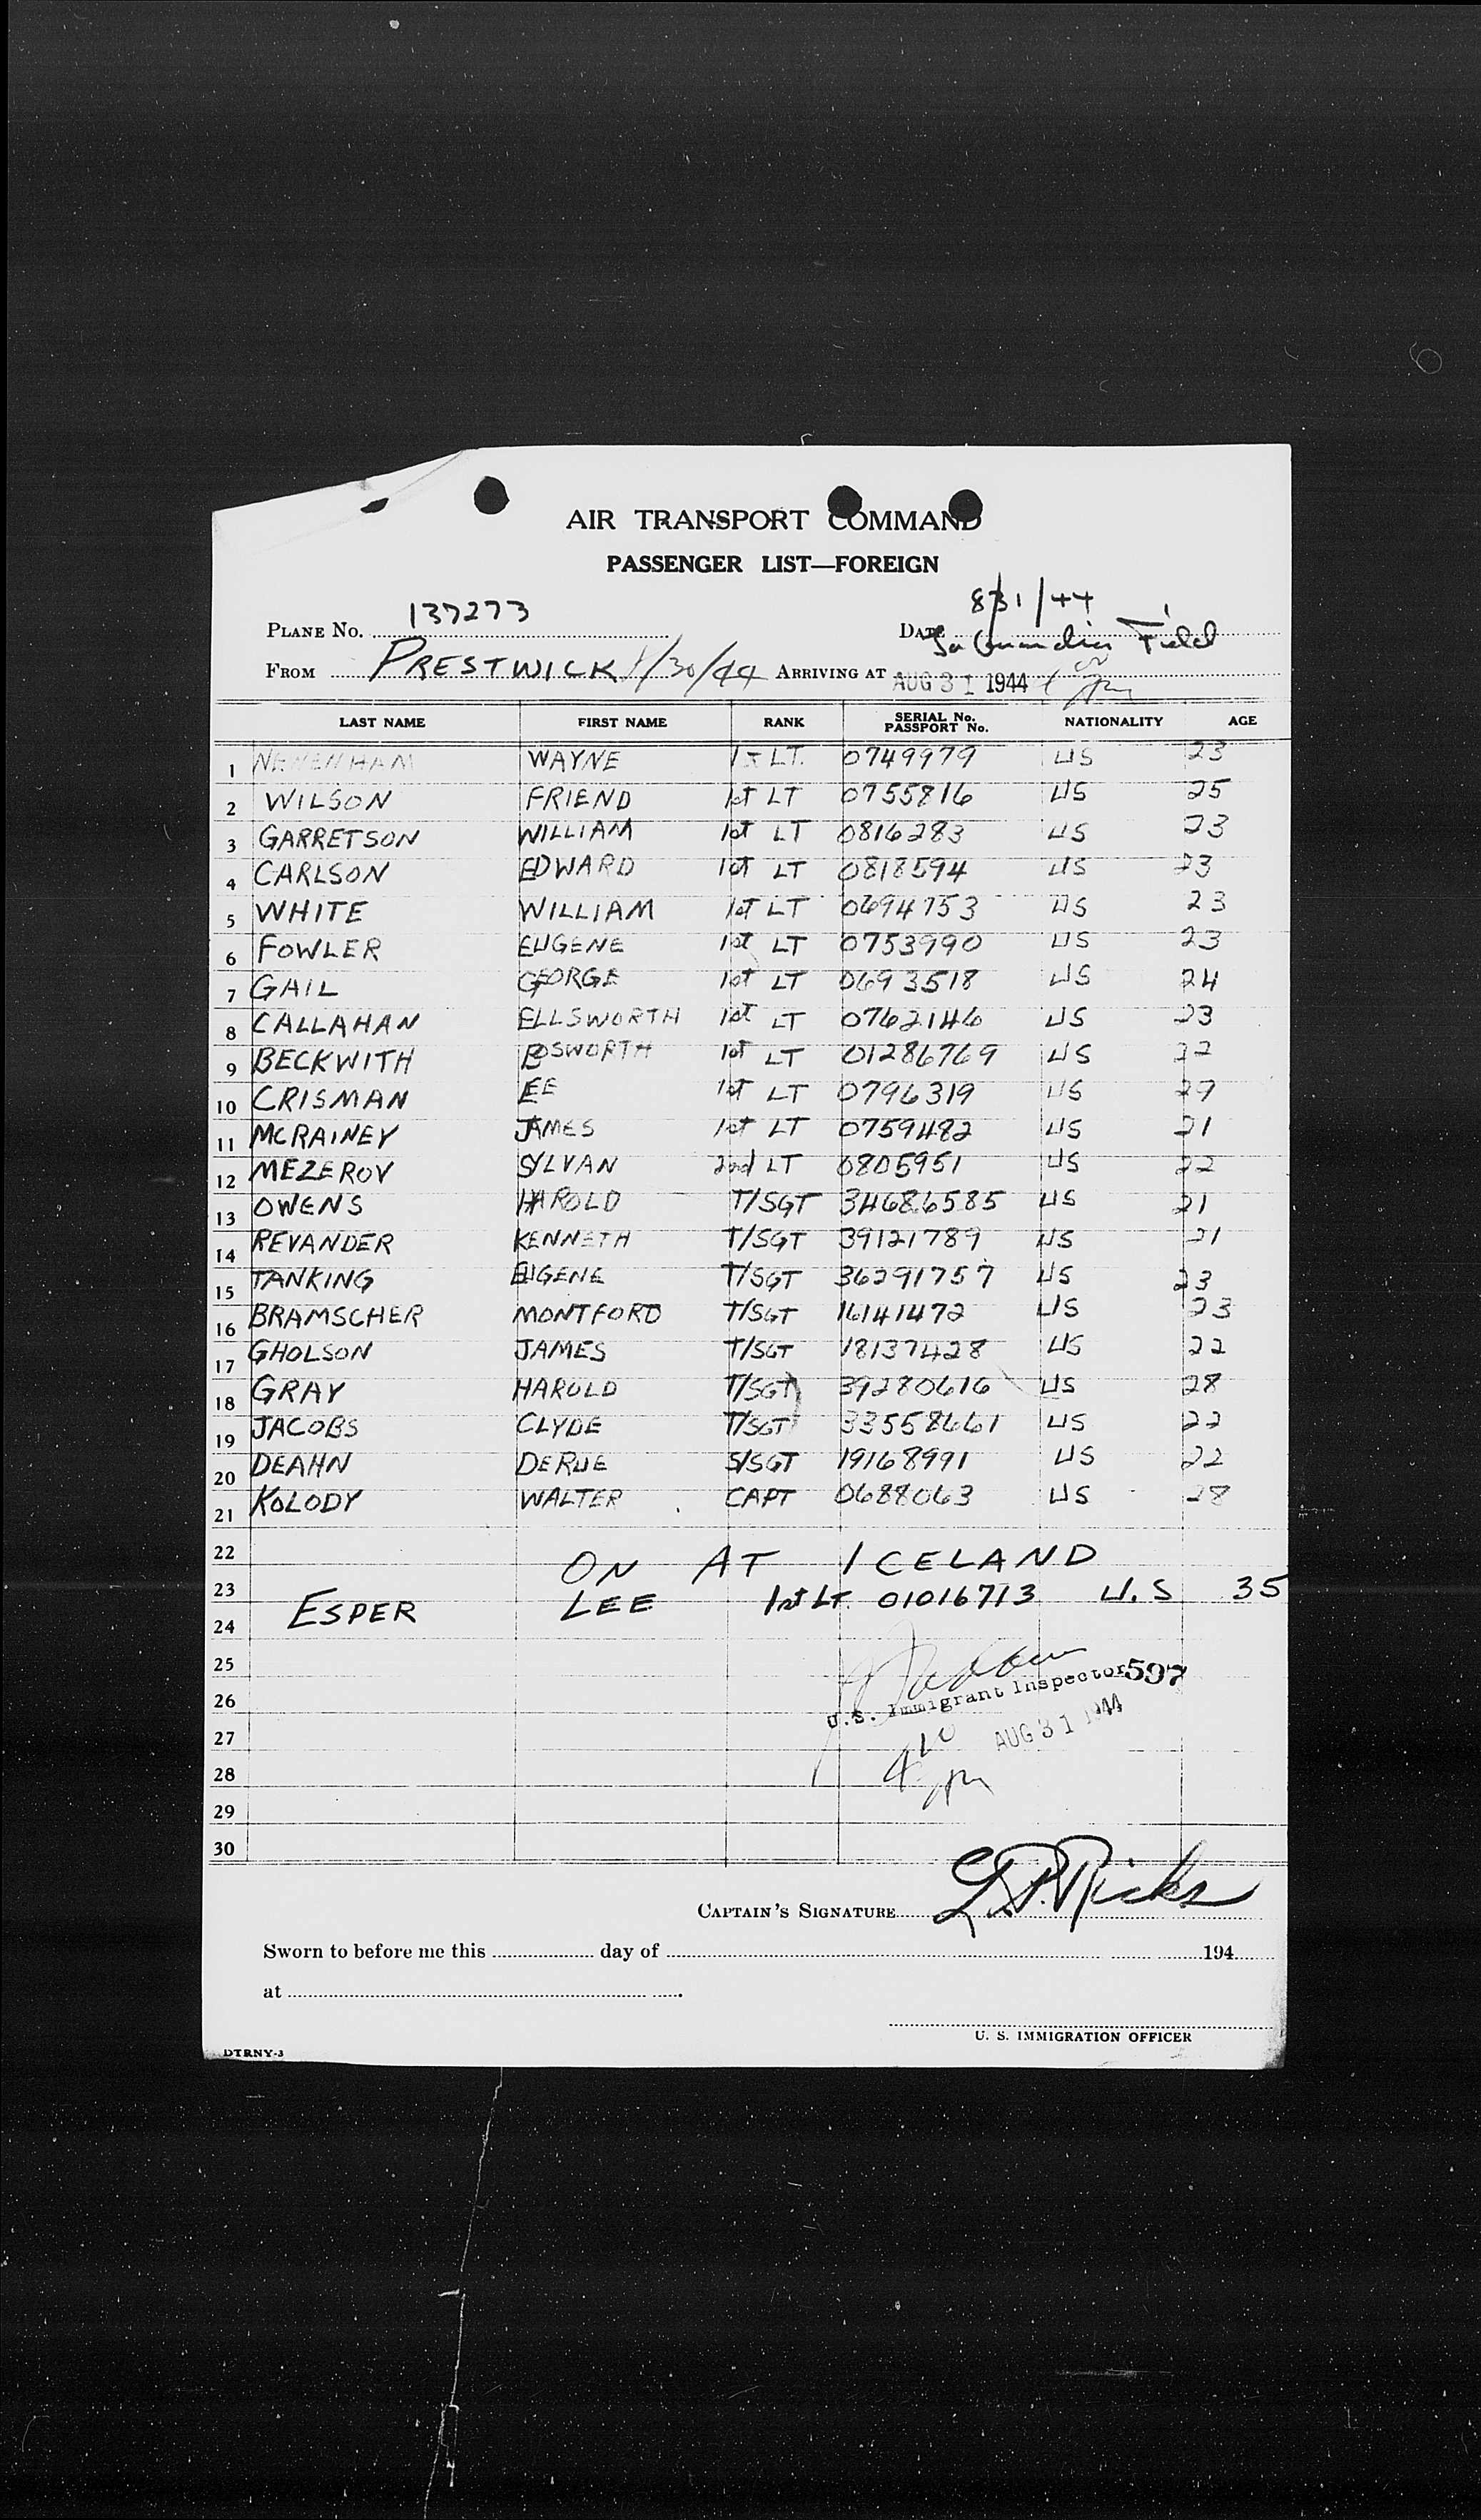 AIR TRANSPORT COMMAND
PASSENGER LIST—FOREIGN
PLANE No. 137273 DATE 8/31/44
La Guardia Field
FROM PRESTWICK 8/30/44 ARRIVING AT AUG 31 1944
LAST NAME FIRST NAME RANK SERIAL No. PASSPORT No. NATIONALITY AGE
1 WAYNE 1st LT. 0749979 US 23
2 WILSON FRIEND 1st LT 0755816 US 25
3 GARRETSON WILLIAM 1st LT 0816283 US 23
4 CARLSON EDWARD 1st LT 0818594 US 23
5 WHITE WILLIAM 1st LT 0694753 US 23
6 FOWLER EUGENE 1st LT 0753990 US 23
7 GAIL GEORGE 1st LT 0693518 US 24
8 CALLAHAN ELLSWORTH 1st LT 0762146 US 23
9 BECKWITH BOSWORTH 1st LT 01286769 US 22
10 CRISMAN EE 1st LT 0796319 US 29
11 MCRAINEY JAMES 1st LT 0759482 US 21
12 MEZEROV SYLVAN 2nd LT 0805951 US 22
13 OWENS HAROLD T/SGT 34686585 US 21
14 REVANDER KENNETH T/SGT 39121789 US 21
15 TANKING EUGENE T/SGT 36291757 US 23
16 BRAMSCHER MONTFORD T/SGT 16141472 US 23
17 GHOLSON JAMES T/SGT 18137428 US 22
18 GRAY HAROLD T/SGT 39280616 US 28
19 JACOBS CLYDE T/SGT 33558661 US 22
20 DEAHN DERUE S/SGT 19168991 US 22
21 KOLODY WALTER CAPT 0688063 US 28
22 ON AT ICELAND
23 ESPER LEE 1st LT. 01016713 U.S 35
24
25
U.S. Immigrant Inspector 597
26
27 410 AUG 31 1944
28 pm
29
30
CAPTAIN'S SIGNATURE L.P. Ricks
Sworn to before me this day of 194
at
U. S. IMMIGRATION OFFICER
DTRNY-3